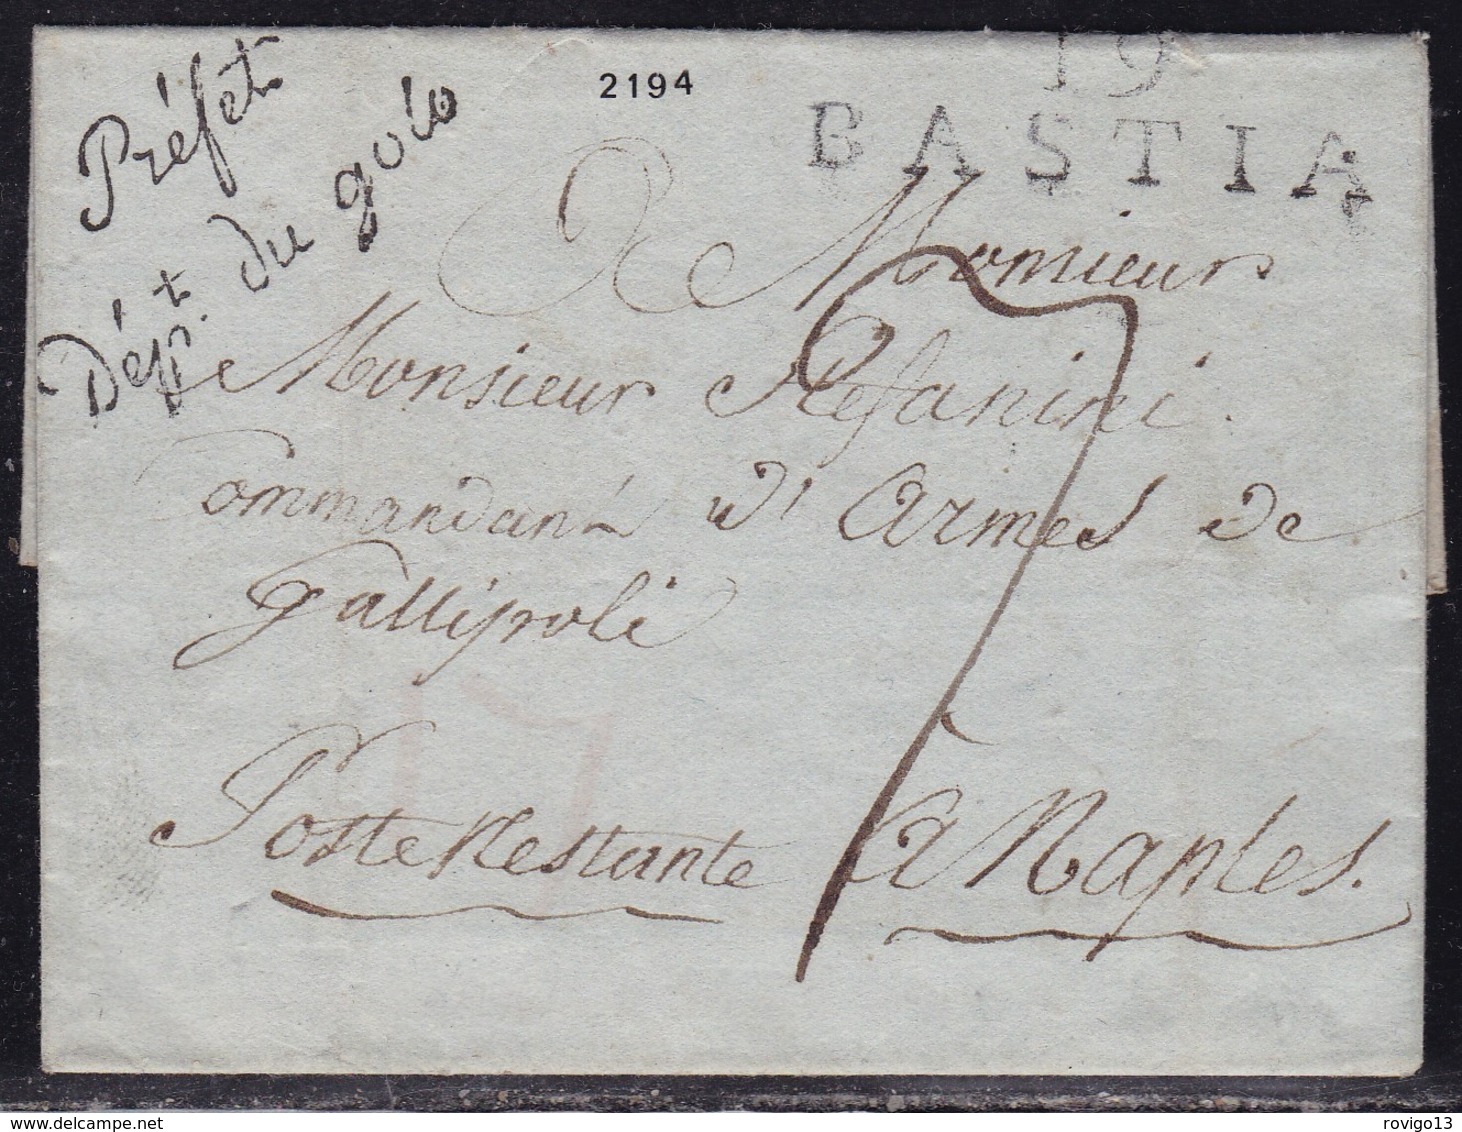 Préfet
Dépt. du golo
2194
19
BASTIA
A Monsieur
Monsieur Stefanini.
Commandant d'Armes de
Gallipoli
17
7
Poste Restante à Naples.
delcampe.net
rovigo13